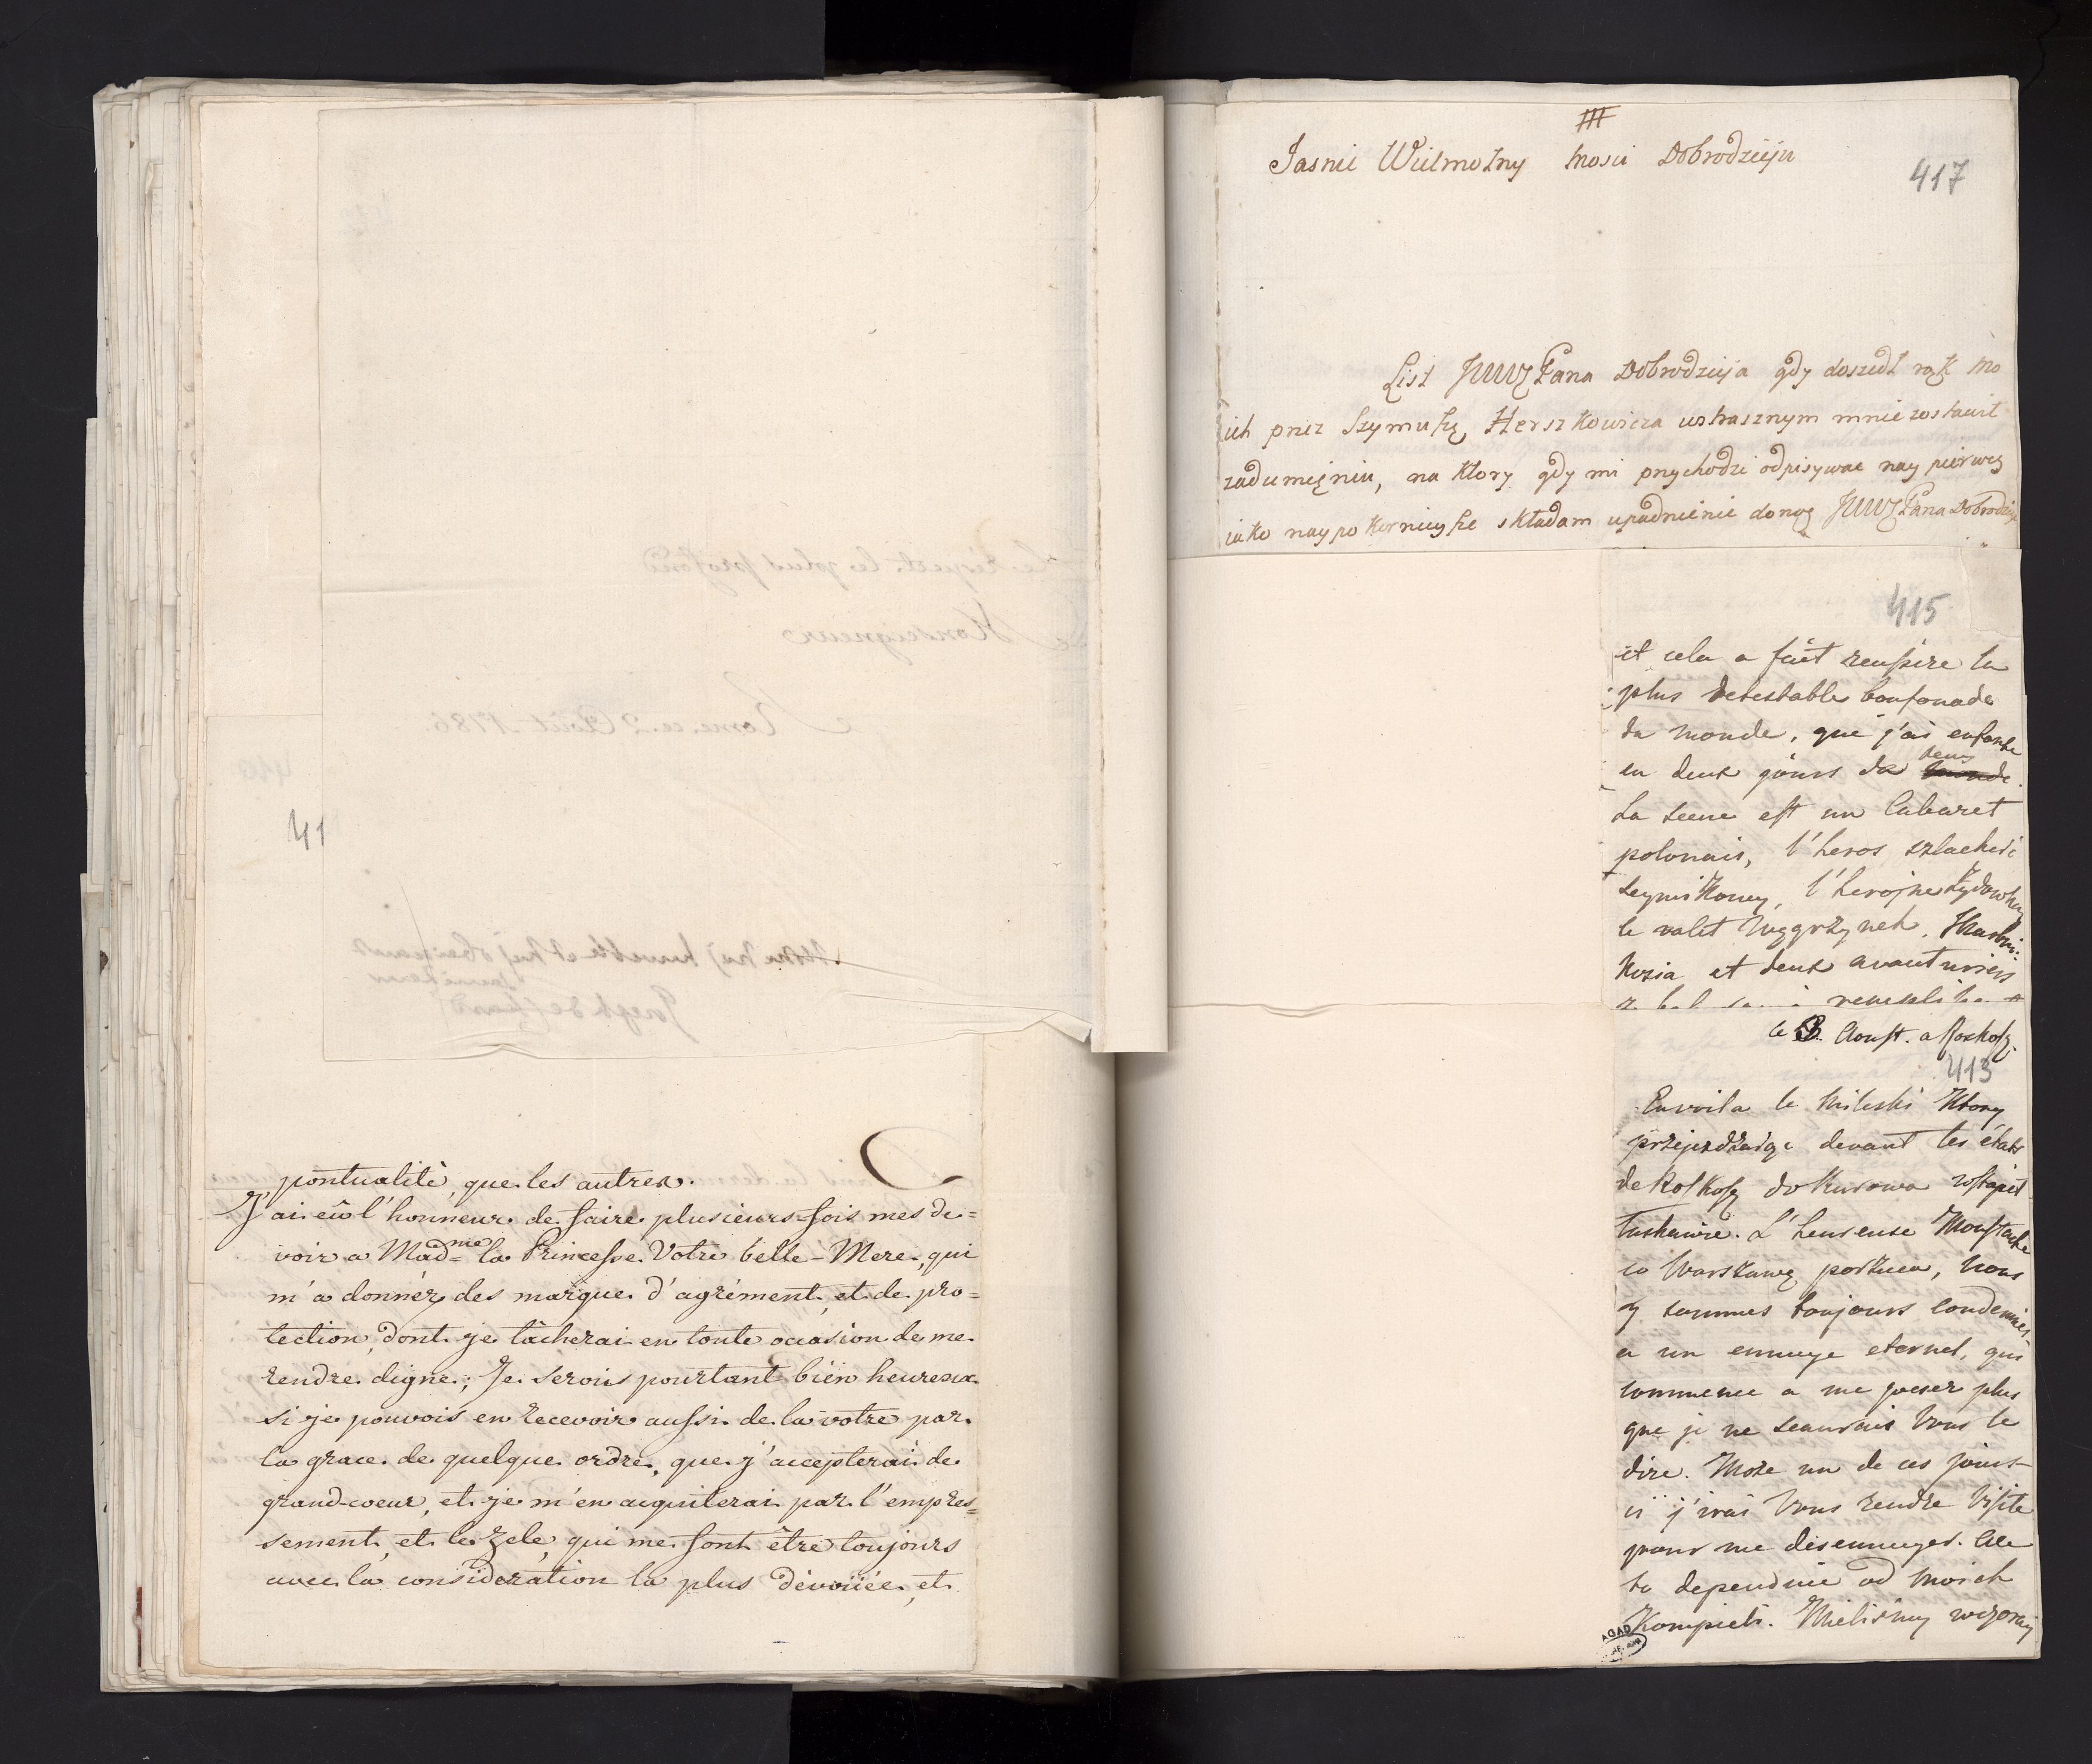 pontualitè, que les autres.
J'ai eû l'honneur de faire plusieurs fois mes de=
voir a Mad=me la Princesse Votre belle-Mere, qui
m'a donnéz des marque d'agrément, et de pro=
tection, dont je tâcherai en toute occasion de me
rendre digne; Je serois pourtant bien heureux
si je pouvois en recevoir aussi de la votre par
la grace de quelque ordre, que j'accepterai de
grand-coeur, et je m'en acquiterai par l'empres=
sement, et le zele, qui me font être toujours
avec la consideration la plus dévoüée, et
41
III
Jasnie Wielmozny Mosci Dobrodzieju
417
List JWWZ Pana Dobrodzieja gdy doszedł rąk mo
ich przez Szymuskę Herszkowicza wstrasznym mnie zostawił
zadumięniu, na ktory gdy mi przychodzi odpisywac nay pierwey
iako naypokornieysze składam upadnienie donog JWWZ Pana Dobrodzieja
415
et cela a fait reussire la
plus detestable boufonade
du monde, que j'ai enfanté
en deux jours de tems
La scene est un Cabaret
polonais, l'heros szlachcic
seymikowy, l'heroine Żydowka
le valet Węgrzynek,
Kozia et deux avanturiers
le 3. Aoust. a Roskosz.
413
En voila le Mileski Ktory
przejezdzaiąc devant les états
de Roskosz do Kurowa wstąpił
L'heureuse Moustache
co Warszawę porzuca, nous
y sommes toujours condemnés
a un ennuye eternel, qui
commence a me peser plus
que je ne scaurais vous le
dire. Może un de ces jours-
ci j'irai vous rendre visite
pour me desennuyer. Ale
to dependuie od moich
Kompieli. Mielismy wczoray
AGAD